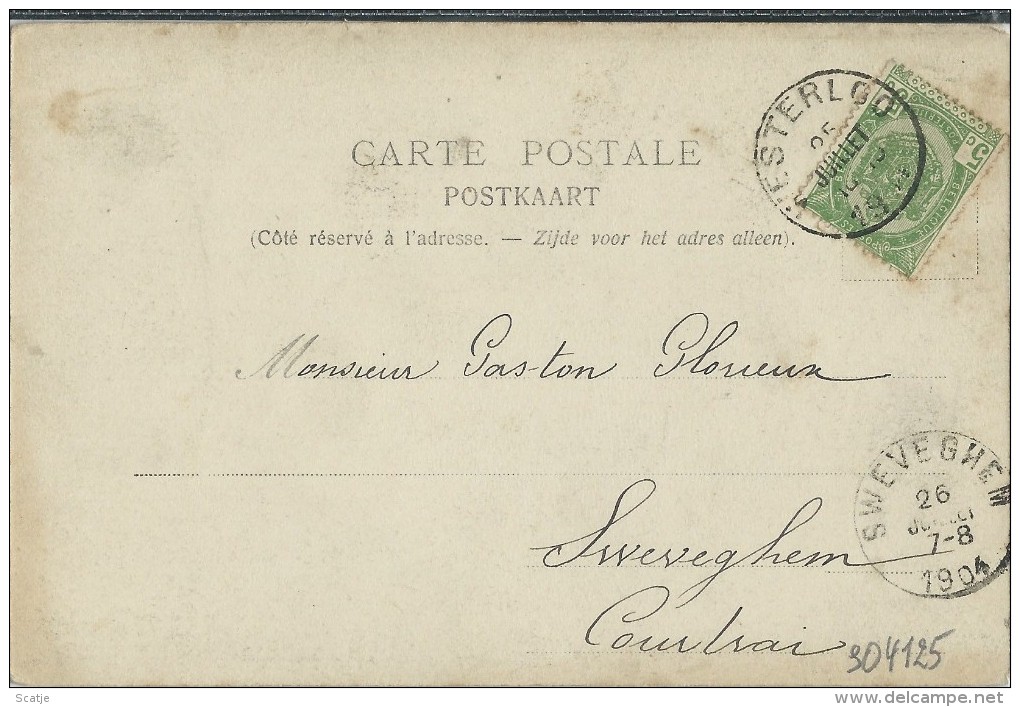 CARTE POSTALE
POSTKAART
(Côté réservé à l'adresse. — Zijde voor het adres alleen).
WESTERLOO
25
JUILLET
Monsieur Gaston Glorieux
SWEVEGHEM
26
JUILLET
7-8
1904
Sweveghem
Courtrai
304125
Scatje
delcampe.net